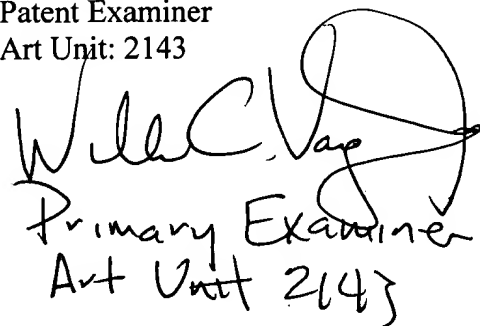 Patent Examiner
Art Unit: 2143
C. 
Primary Examiner
Art Unit 2143